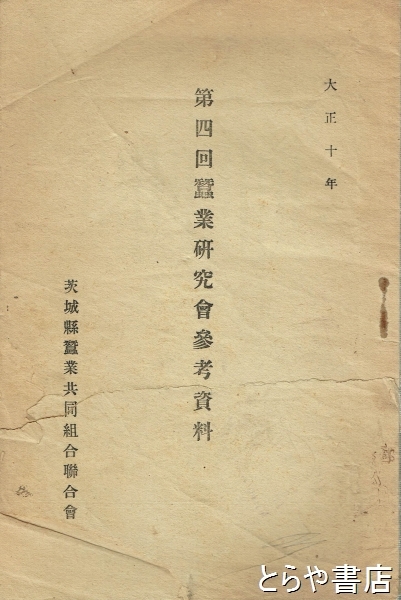 大正十年
第四回蠶業硏究會參考資料
茨城縣蠶業共同組合聯合會
とらや書店